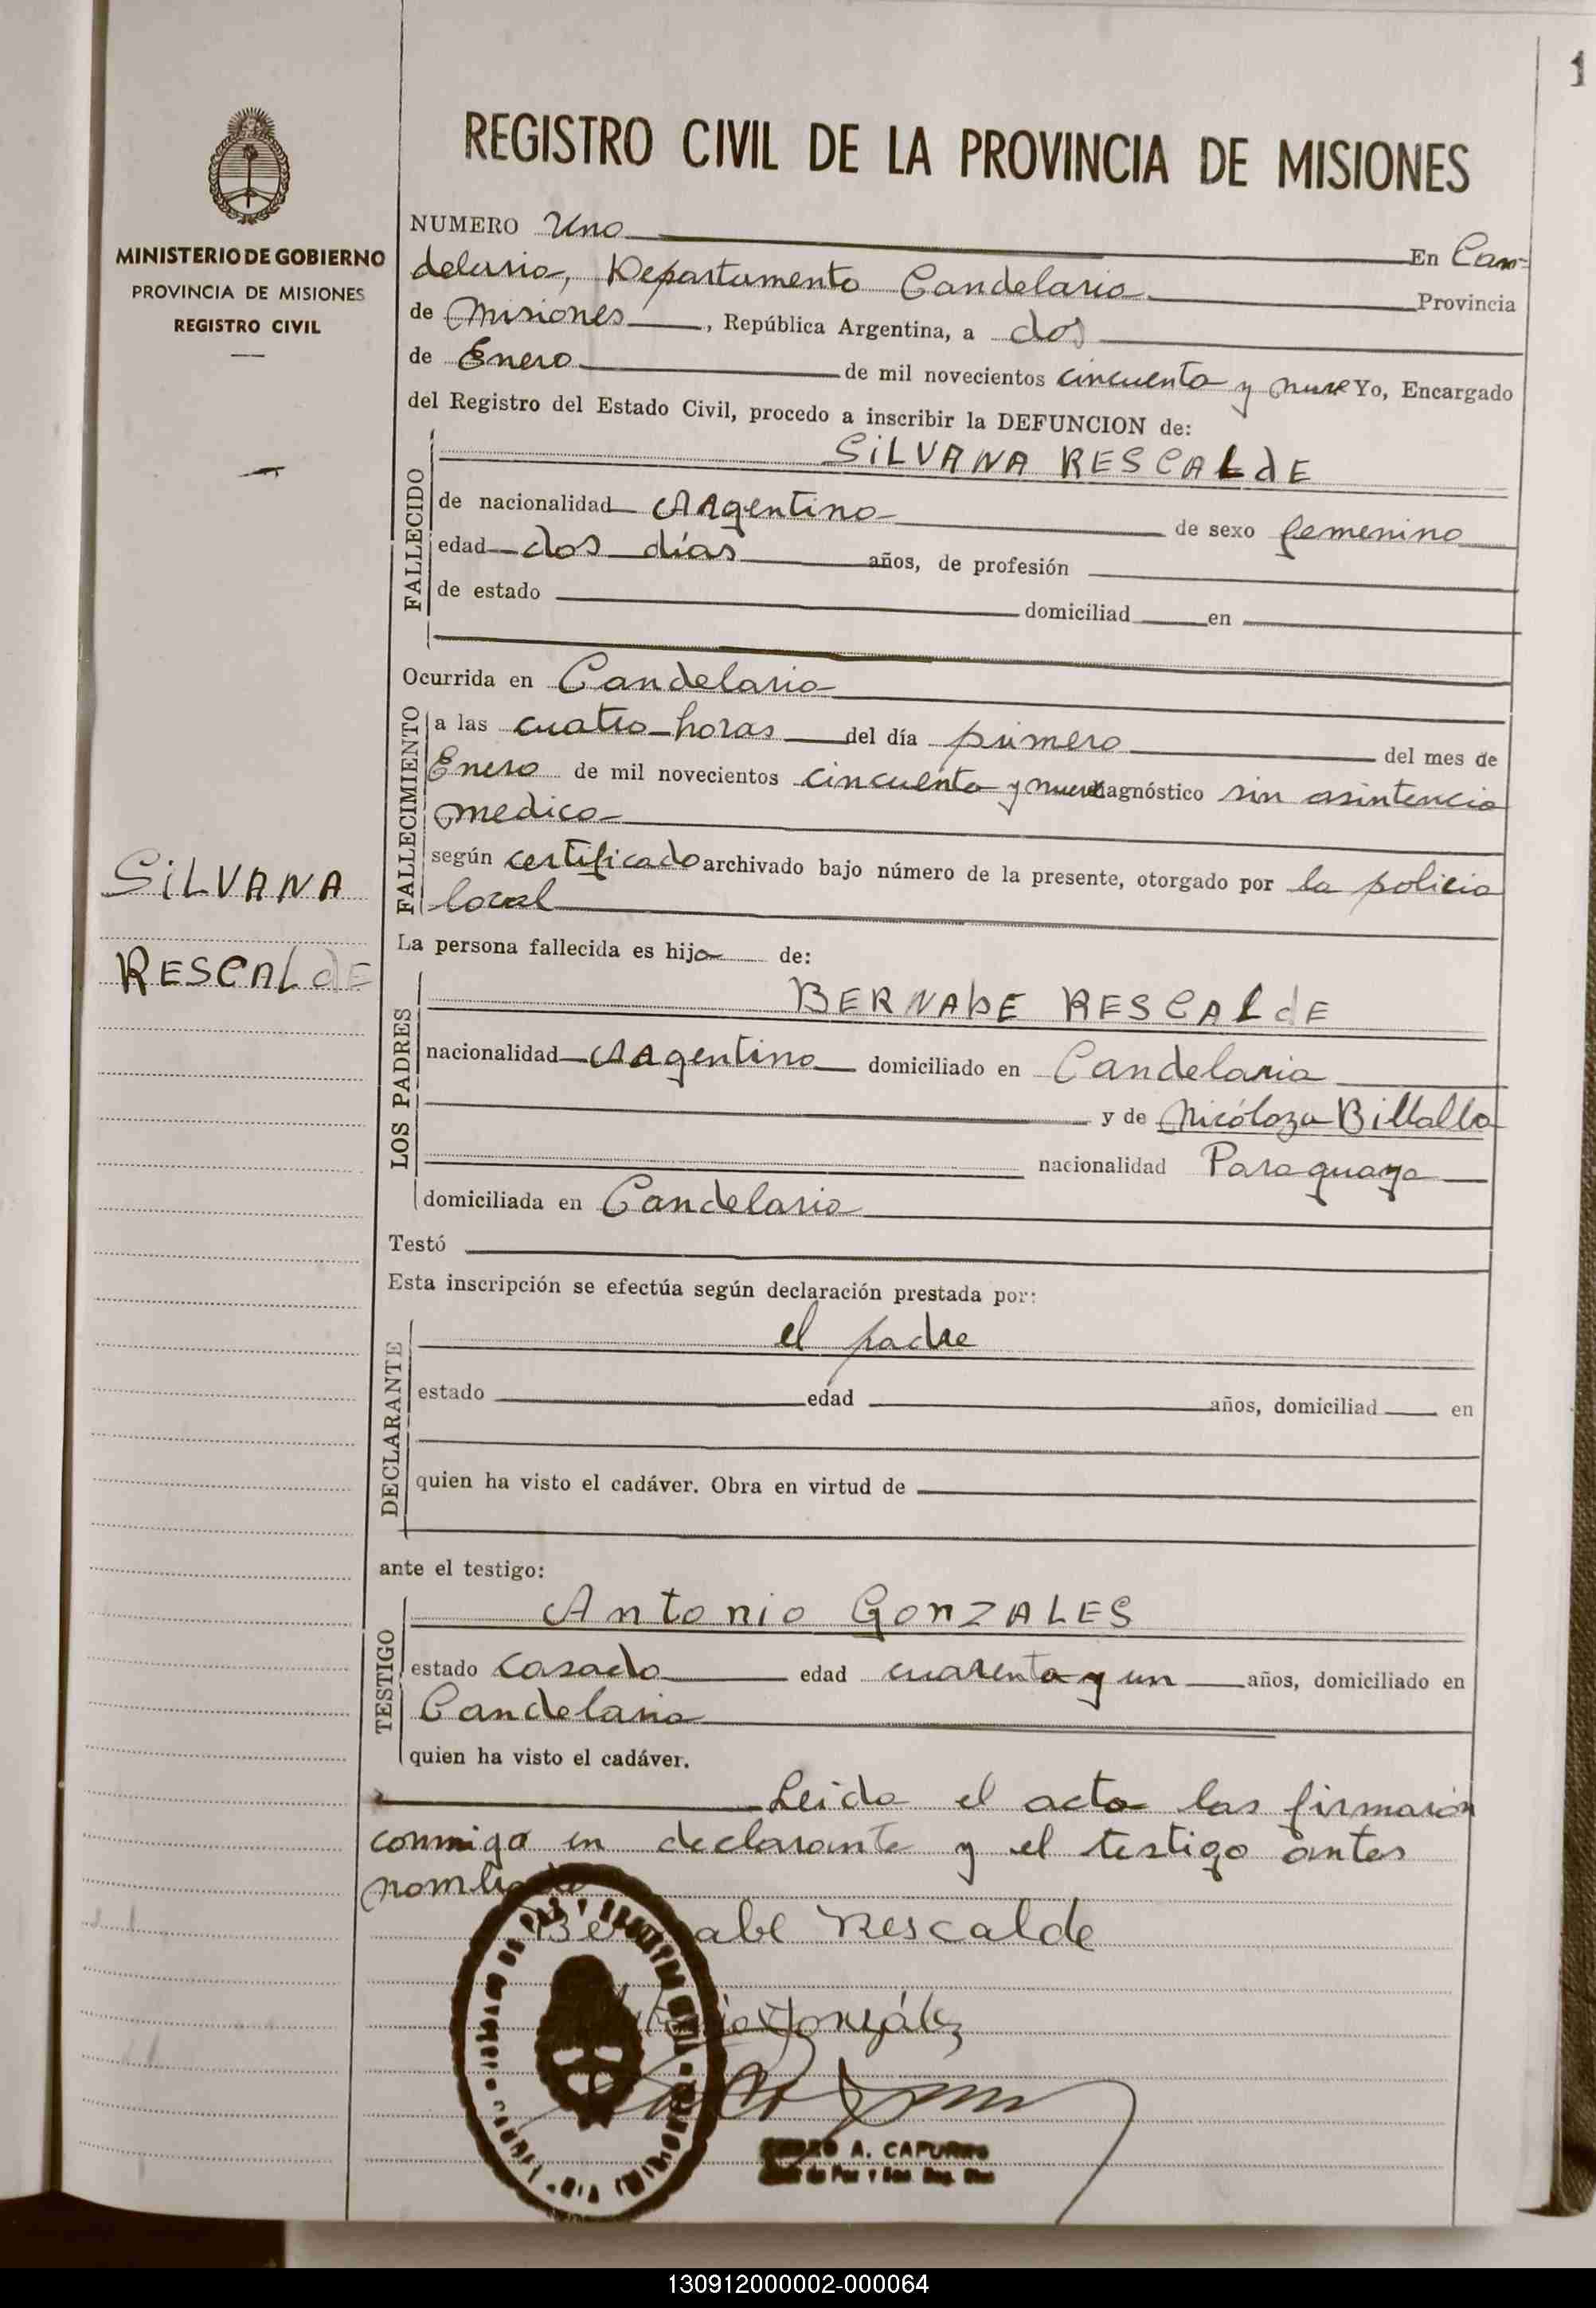 1
REGISTRO CIVIL DE LA PROVINCIA DE MISIONES
MINISTERIO DE GOBIERNO
PROVINCIA DE MISIONES
REGISTRO CIVIL
NUMERO Uno En Can-
delaria, Departamento Candelaria Provincia
de Misiones, República Argentina, a dos
de Enero de mil novecientos cincuenta y nueve Yo, Encargado
del Registro del Estado Civil, procedo a inscribir la DEFUNCION de:
SILVANA RESCALdE
FALLECIDO
de nacionalidad Argentina de sexo femenino
edad dos días años, de profesión
de estado domiciliad en
Ocurrida en Candelaria
FALLECIMIENTO
a las cuatro horas del día primero del mes de
Enero de mil novecientos cincuenta y nueve diagnóstico sin asintencia
medica
según certificado archivado bajo número de la presente, otorgado por la policia
local
SILVANA
RESCALdE
La persona fallecida es hija de:
LOS PADRES
BERNAbE RESCALdE
nacionalidad Argentina domiciliado en Candelaria
y de Nicóloza Billalba
nacionalidad Paraguaya
domiciliada en Candelaria
Testó
Esta inscripción se efectúa según declaración prestada por:
DECLARANTE
el padre
estado edad años, domiciliad en
quien ha visto el cadáver. Obra en virtud de
ante el testigo:
TESTIGO
Antonio GONZALES
estado casado edad cuarenta y un años, domiciliado en
Candelaria
quien ha visto el cadáver.
Leida el acta las firmaron
conmigo en declarante y el testigo antes
Rescalde
González
A. CAPURRO
130912000002-000064